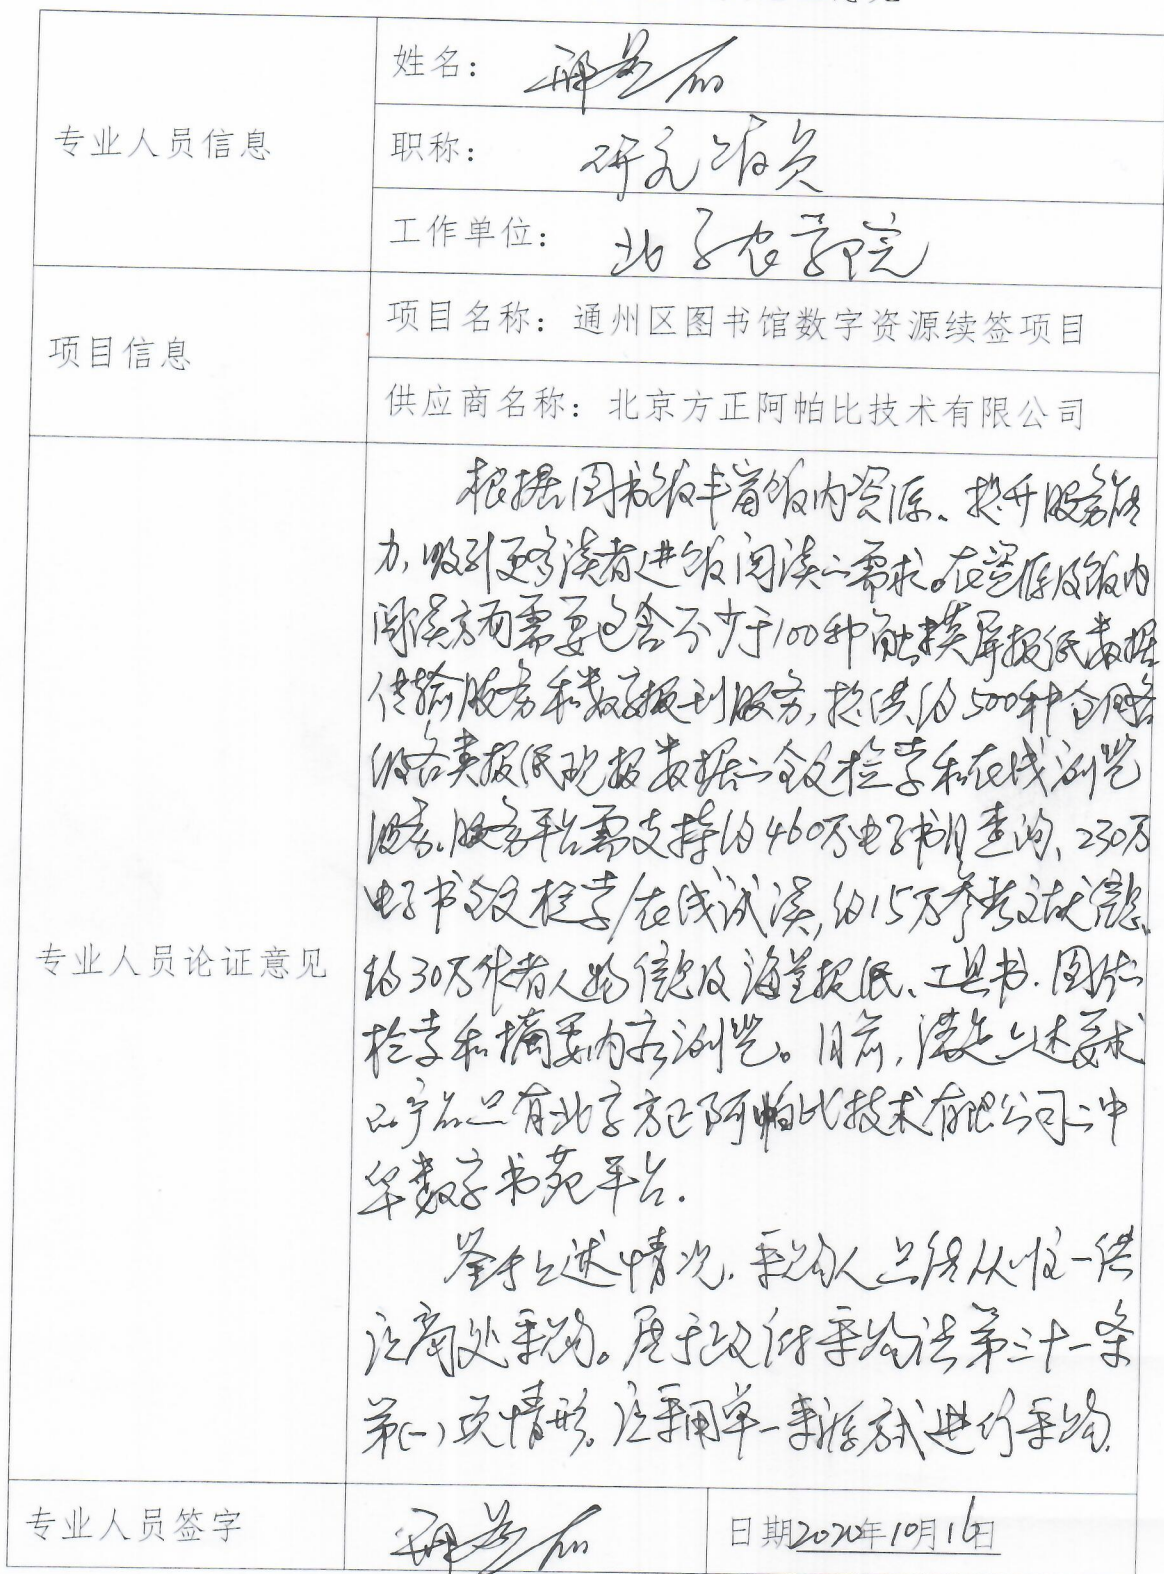 专业人员信息
姓名：邢
职称：研究馆员
工作单位：北京农学院
项目信息
项目名称：通州区图书馆数字资源续签项目
供应商名称：北京方正阿帕比技术有限公司
专业人员论证意见
根据图书馆丰富馆内资源、提升服务能
力，吸引更多读者进馆阅读的需求。在资源及馆内
阅读方面需要包含不少于100种触摸屏报纸数据
传输服务和数字报刊服务，提供约500种全国各
级各类报纸晚报数据的全文检索和在线浏览
服务。服务平台需支持约460万电子书目查询、230万
电子书全文检索/在线试读，约15万参考文献信息、
约30万作者人物信息及海量报纸、工具书、图片的
检索和摘要内容浏览。目前，满足上述要求
的产品只有北京方正阿帕比技术有限公司的中
华数字书苑平台。
鉴于上述情况，采购人只能从唯一供
应商处采购。属于政府采购法第三十一条
第(一)项情形。应采用单一来源方式进行采购。
专业人员签字
邢
日期2020年10月16日